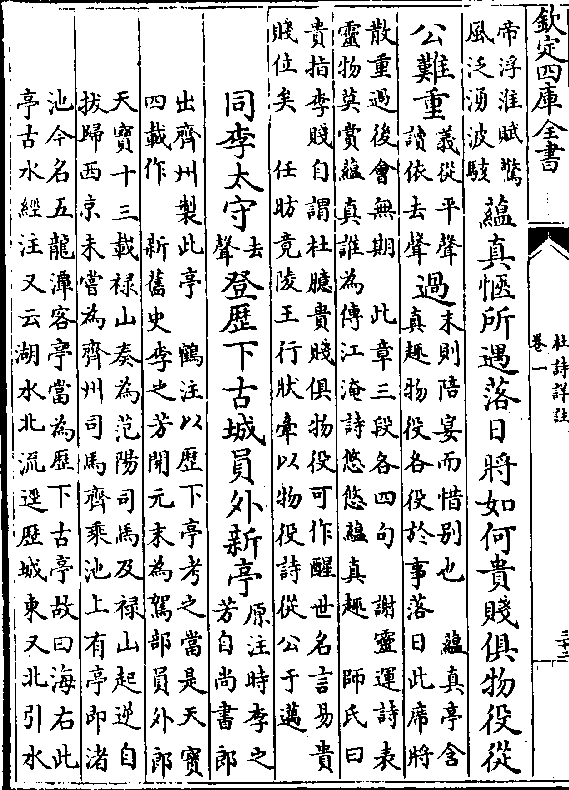 欽定四庫全書
杜詩詳註
卷一
帝浮淮賦驚
風泛湧波駭
蘊真愜所遇落日將如何貴賤俱物役從
公難重
義從平聲
讀依去聲
過
末則陪宴而惜别也 蘊真亭含
真趣物役各役於事落日此席將
散重過後會無期 此章三段各四句 謝靈運詩表
靈物莫賞蘊真誰為傳江淹詩悠悠蘊真趣 師氏曰
貴指李賤自謂杜臆貴賤俱物役可作醒世名言易貴
賤位矣 任昉竟陵王行狀牽以物役詩從公于邁
同李太守
去
聲
登歷下古城員外新亭
原注時李之
芳自尚書郎
出齊州製此亭 鶴注以歷下亭考之當是天寶
四載作 新舊史李之芳開元末為駕部員外郎
天寶十三載禄山奏為范陽司馬及禄山起逆自
拔歸西京未嘗為齊州司馬齊乘池上有亭即渚
池今名五龍潭客亭當為歷下古亭故曰海右此
亭古水經注又云湖水北流逕歷城東又北引水